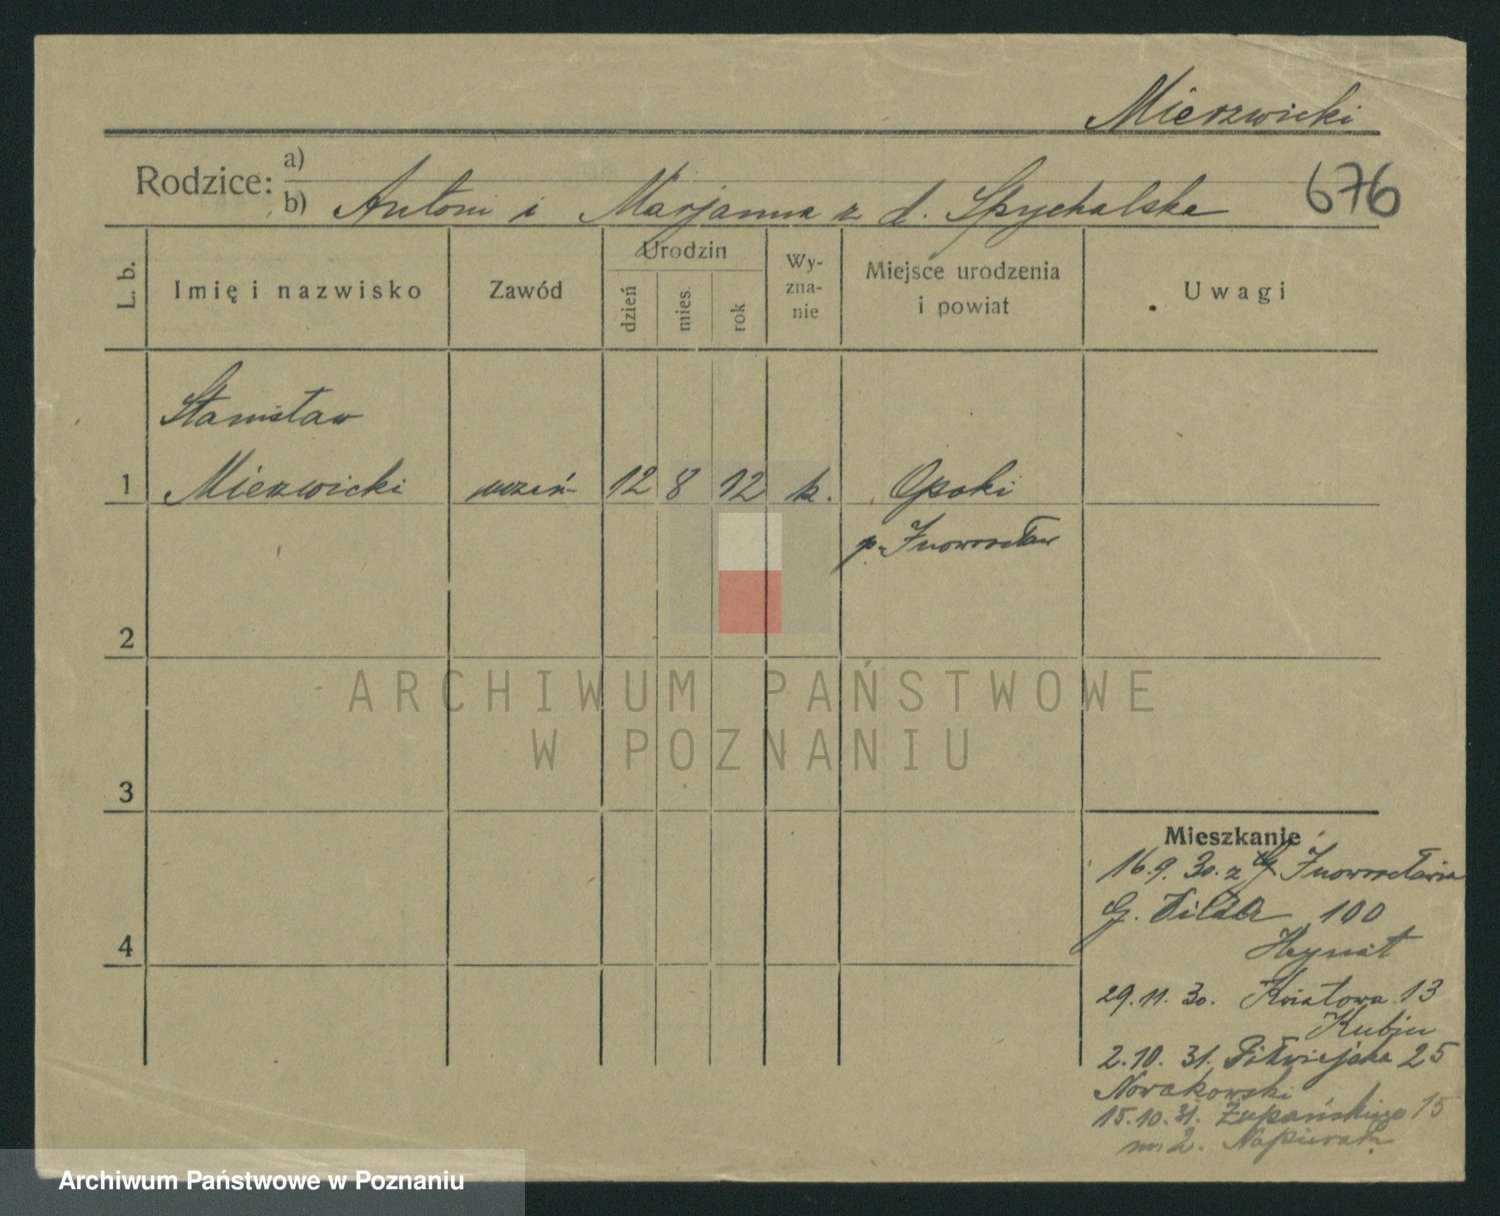 Mierzwicki
Rodzice:
a)
b) Antoni i Marjanna z d. Spychalska
676
L. b.
Imię i nazwisko
Zawód
Urodzin
dzień
mies.
rok
Wy-
zna-
nie
Miejsce urodzenia
i powiat
Uwagi
Stanisław
1 Mierzwicki uczeń 12 8 12 k. Opoki
p. Inowrocław
2
3
4
ARCHIWUM PAŃSTWOWE
W POZNANIU
Mieszkanie
16.9.30. z Inowrocławia
G. Wilda 100
29.11.30. Kwiatowa 13
2.10.31. Półwiejska 25
Nowakowski
15.10.31. Żupańskiego 15
m 2. Napierała
Archiwum Państwowe w Poznaniu